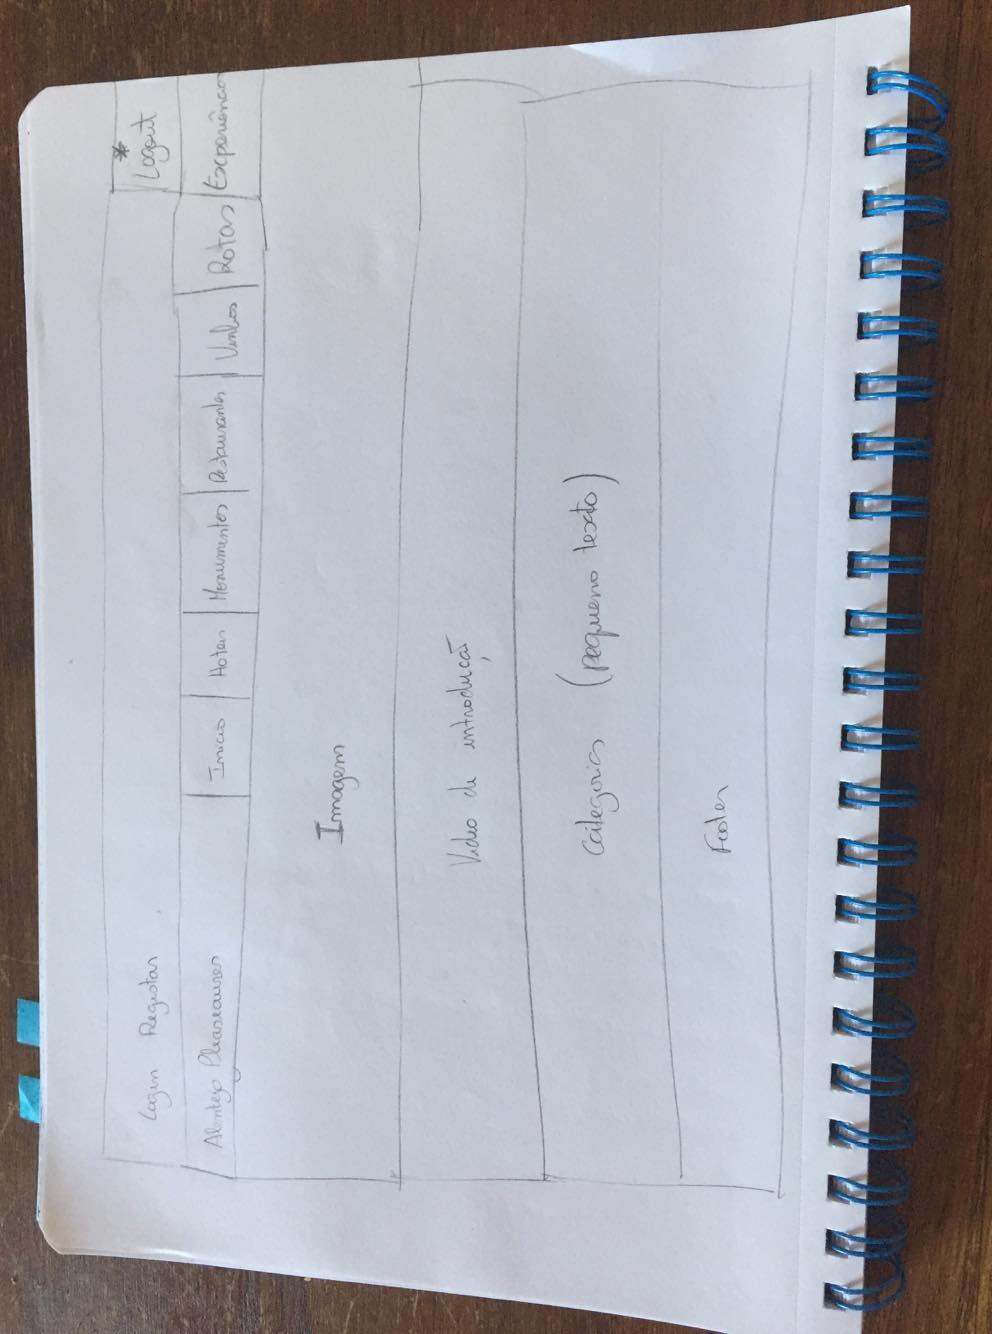 Login Registar * Logout
Alentejo Pleasaures Inicio Hoteis Monumentos Restaurantes Vinhos Rotas Experiências
Imagem
Video de introduçaõ
Categorias (pequeno texto)
Footer